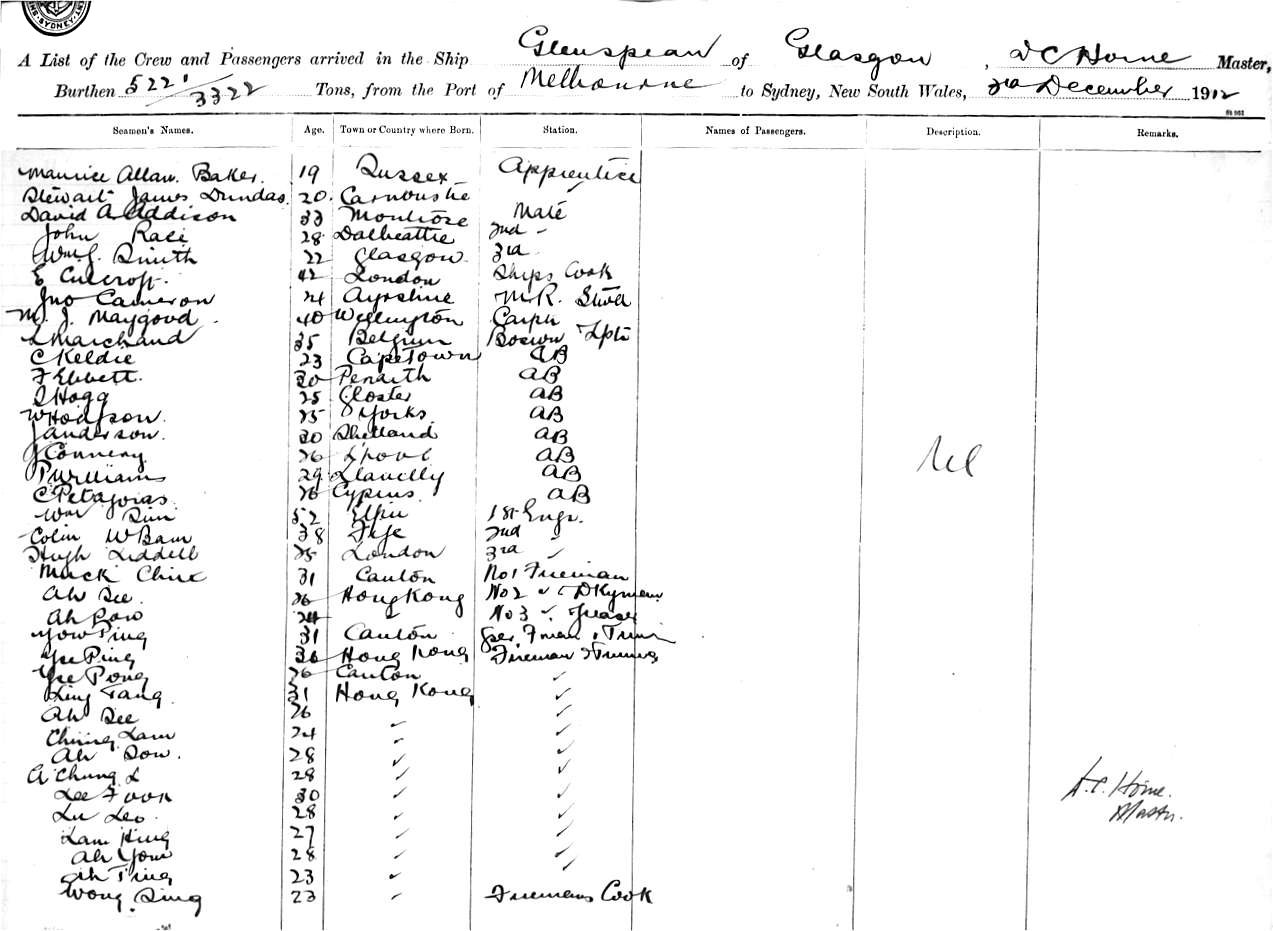 SYDNEY
A List of the Crew and Passengers arrived in the Ship Glenspean of Glasgow, Horne Master,
Burthen 5221/3322 Tons, from the Port of Melbourne to Sydney, New South Wales, 3rd December 1912
Seamen's Names. Age. Town or Country where Born. Station. Names of Passengers. Description. Remarks.
Maurice Allan Baker. 19 Sussex Apprentice
Stewart James Dundas. 20. Carnoustie
David A Addison 33 Montrose Mate
John 28 Dalbeattie 2nd
Wm J. Smith 22 Glasgow 3rd
E 42 London Ships Cook
Jno Cameron 24 Ayrshire M.R.
M. J. Maygood. 40 Wellington Carptr
L Marchand 35 Belgium Bosun
C Keldie 23 CapeTown AB
F Ebbett. 30 Penrith AB
Hogg 25 Gloster AB
W Hodgson. 25 Yorks. AB
J Anderson. 30 Shetland AB
J Connery 26 L'pool AB
P Williams 29 Llanelly AB
C Petagoras 26 Cyprus AB
Wm Sim 52 1st Engr.
Colin W Bain 38 Fife 2nd
Hugh Liddell 25 London 3rd
Mack 31 Canton No 1 Fireman
Ah See. 26 HongKong No 2
Ah 24 No 3
Yow Ping 31 Canton
Yee Ping 36 Hong Kong Fireman
Yee Pong 26 Canton
Ling Tang 31 Hong Kong
Ah See 26
Lam 24
Ah Sow. 28
A Chung 28
Lee Foon 30
28
Lam Hing 27
Ah 28
Ah Ting 23
Wong Sing 23 Firemans Cook
Nil
Horne.
Master.